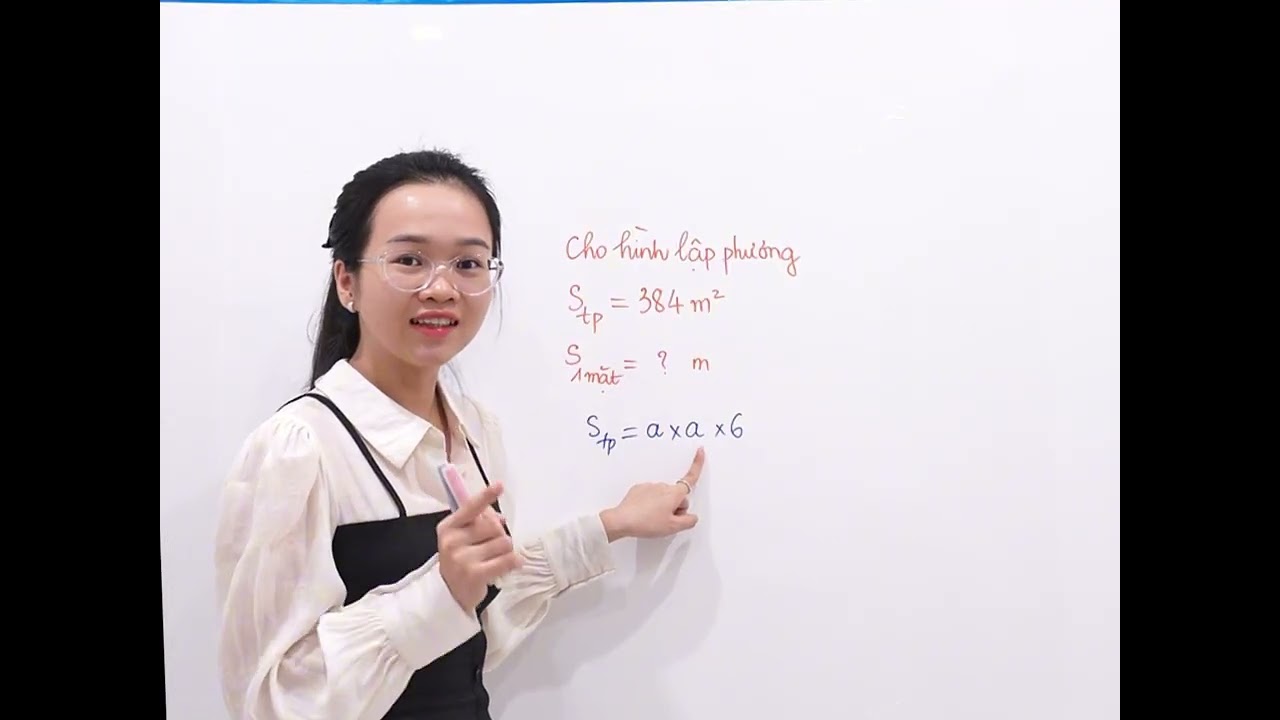 Cho hình lập phương
Stp = 384 m²
S1mặt = ? m
Stp = a x a x 6